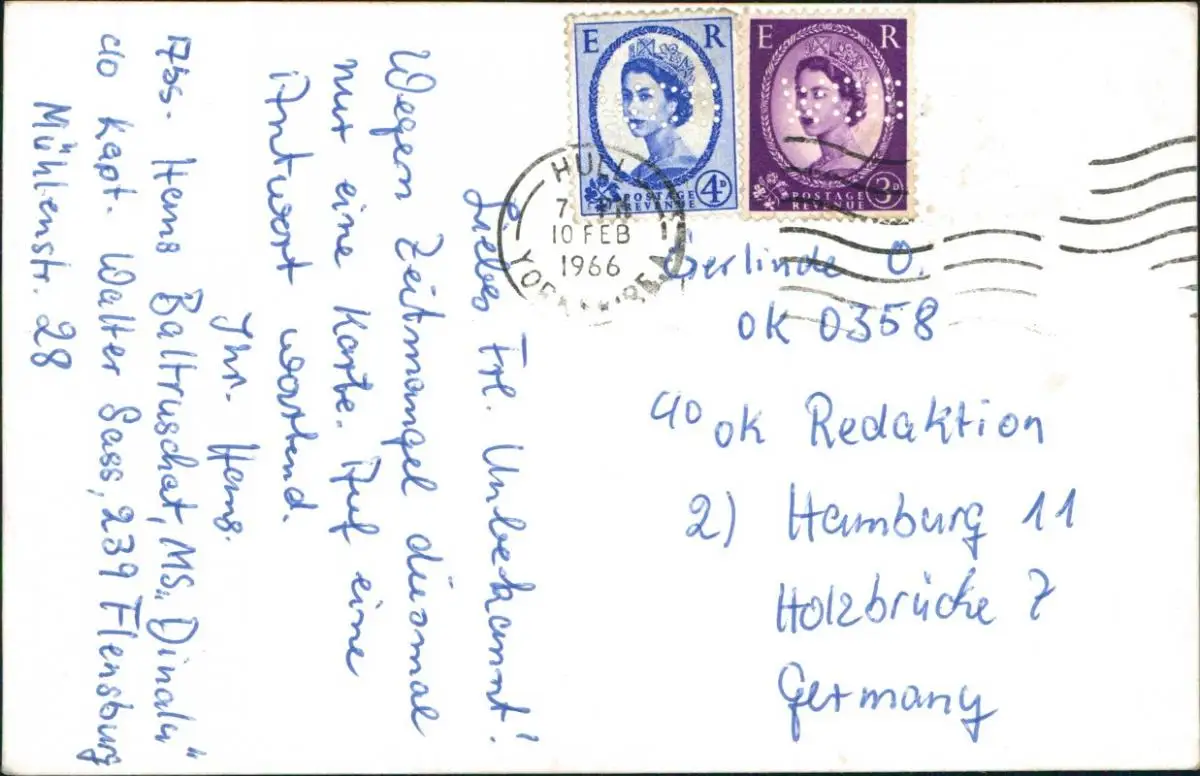 E R
POSTAGE
REVENUE
4D
E R
POSTAGE
REVENUE
3D
HULL
10 FEB
1966
Liebes Frl. Unbekannt!
Wegen Zeitmangel diesmal
nur eine Karte. Auf eine
Antwort wartend.
Ihr. Hans.
Abs. Hans Baltruschat, MS „Dinala"
c/o Kapt. Walter Sass, 239 Flensburg
Mühlenstr. 28
Gerlinde O.
OK 0358
c/o OK Redaktion
2) Hamburg 11
Holzbrücke 7
Germany